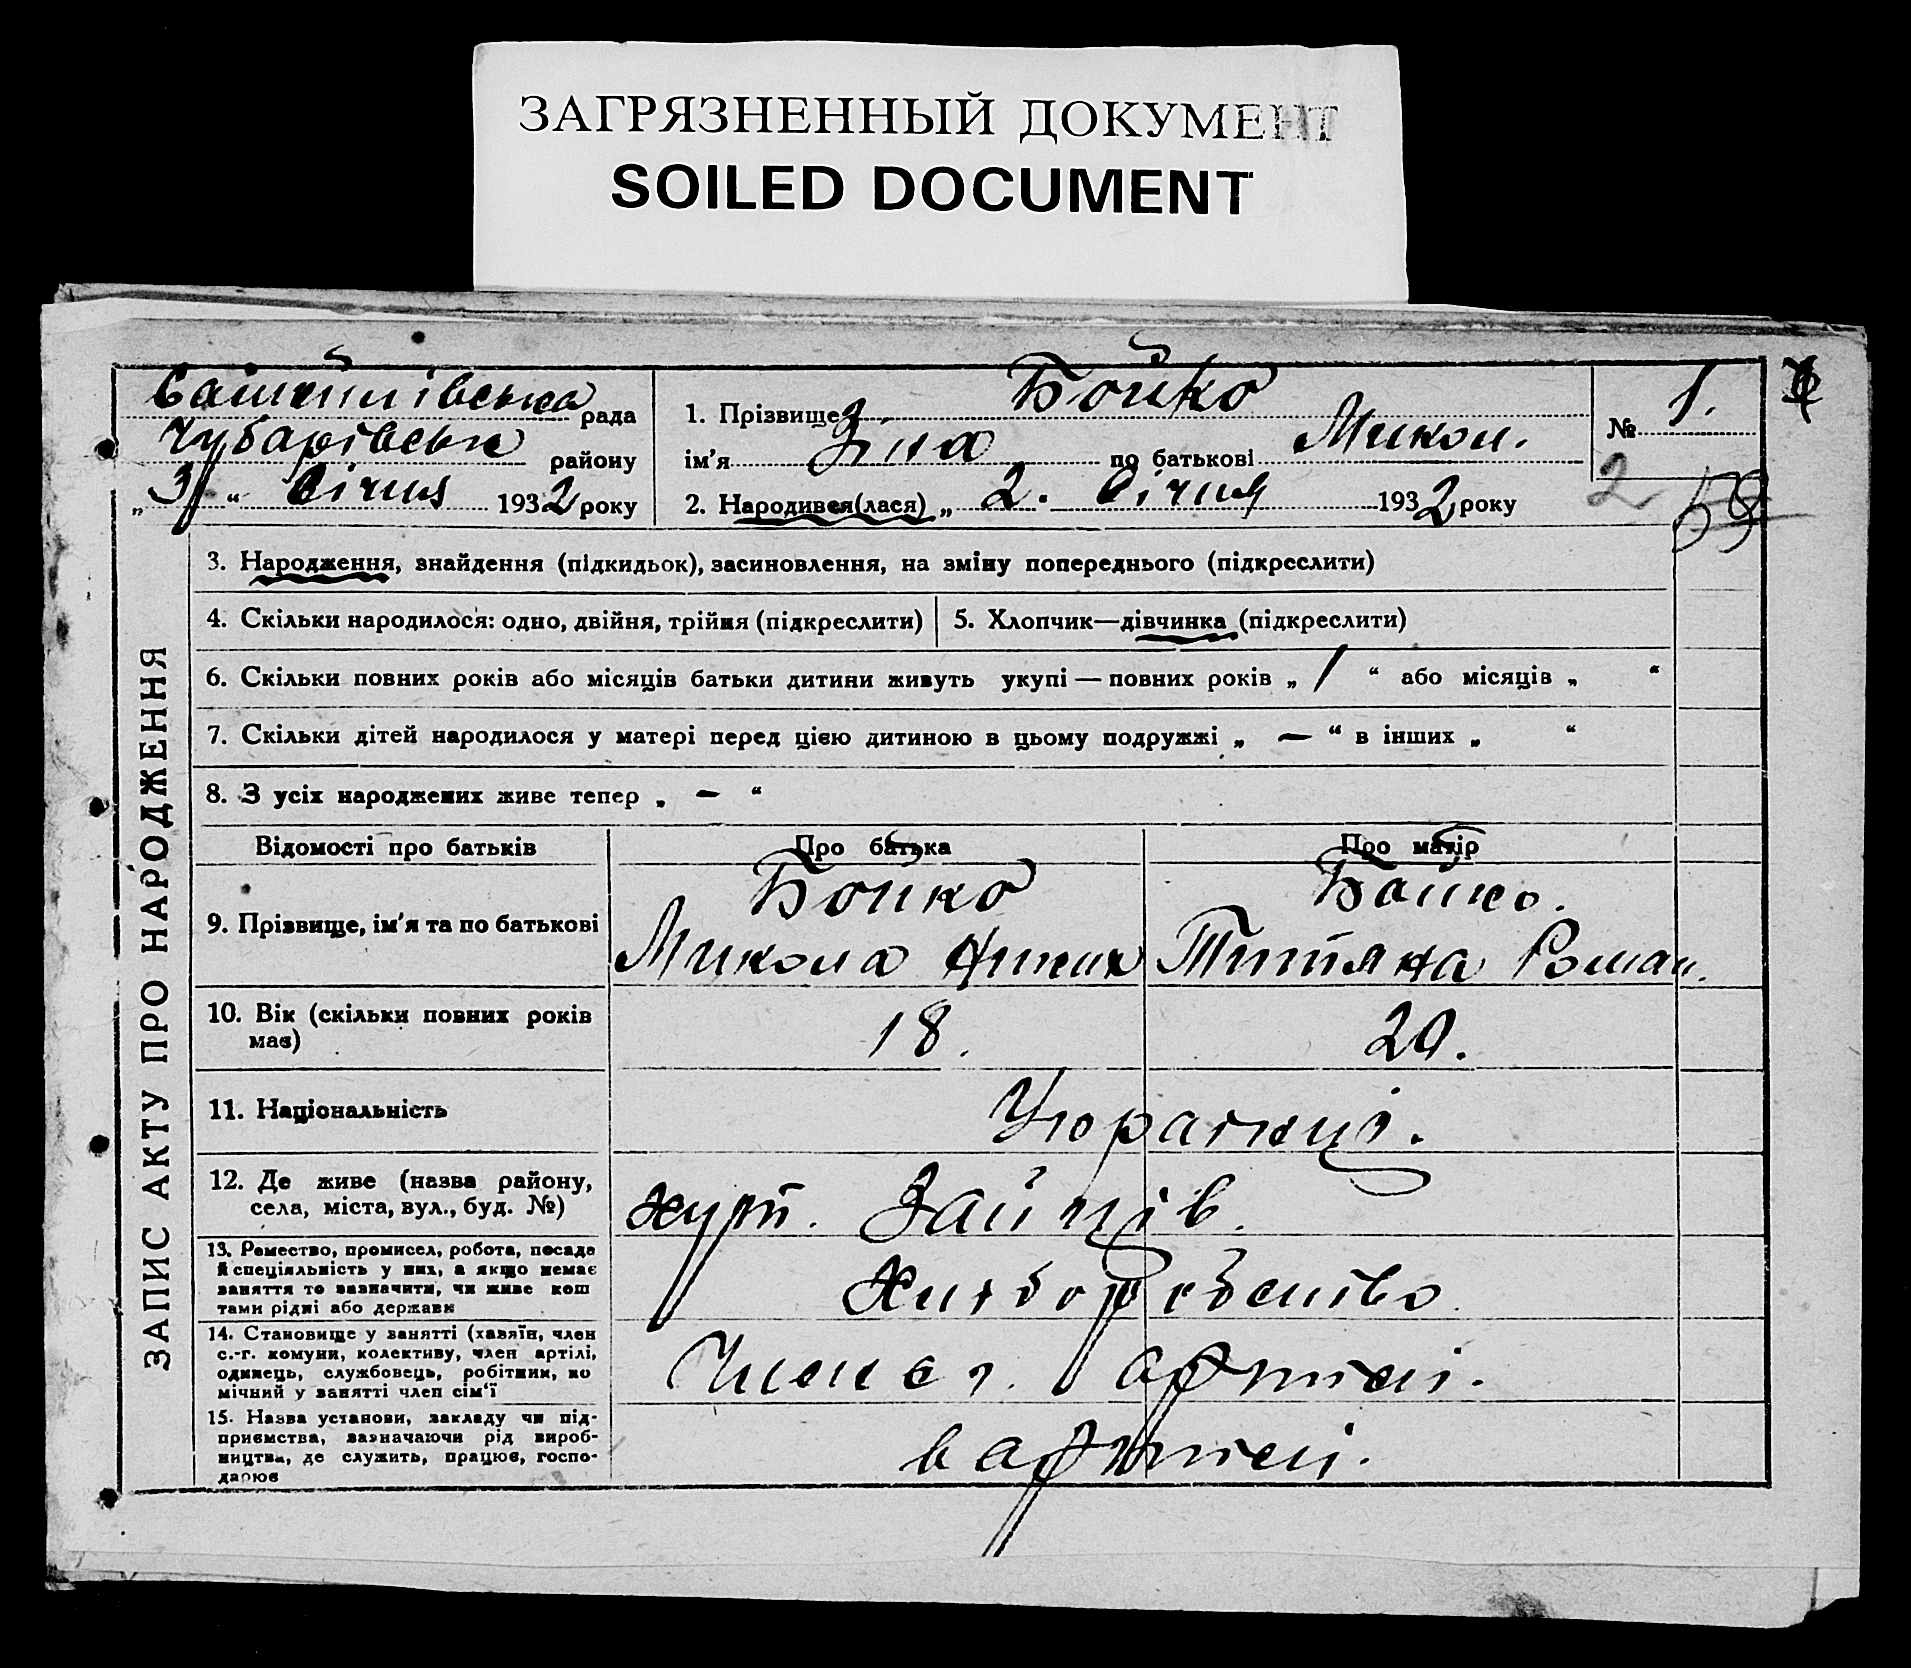 ЗАГРЯЗНЕННЫЙ ДОКУМЕНТ
SOILED DOCUMENT
рада
Чубарівськ району
„3“ Січня 1932 року
1. Прізвище Бойко
ім'я Зіна по батькові Микол.
2. Народився(лася) „2. Січня 1932 року
№ 1.
2
ЗАПИС АКТУ ПРО НАРОДЖЕННЯ
3. Народження, знайдення (підкидьок), засиновлення, на зміну попереднього (підкреслити)
4. Скільки народилося: одно, двійня, трійня (підкреслити)
5. Хлопчик—дівчинка (підкреслити)
6. Скільки повних років або місяців батьки дитини живуть укупі — повних років „ 1 “ або місяців „ “
7. Скільки дітей народилося у матері перед цією дитиною в цьому подружжі „ — “ в інших „ “
8. З усіх народжених живе тепер „ — “
Відомості про батьків
Про батька
Про матір
9. Прізвище, ім'я та по батькові
Бойко
Микола
Бойко.
Титяна Роман.
10. Вік (скільки повних років
має)
18.
20.
11. Національність
Українці.
12. Де живе (назва району,
села, міста, вул., буд. №)
хут. Зайців.
13. Ремество, промисел, робота, посада
й спеціяльність у них, а якщо немає
заняття то зазначити, чи живе кош
тами рідні або держави
Хліборобство
14. Становище у занятті (хазяїн, член
с.-г. комуни, колективу, член артілі,
одинець, службовець, робітник, по
мічний у занятті член сім'ї
Член с г. артілі.
15. Назва установи, закладу чи під-
приємства, зазначаючи рід вироб-
ництва, де служить, працює, госпо-
дарює
в артілі.